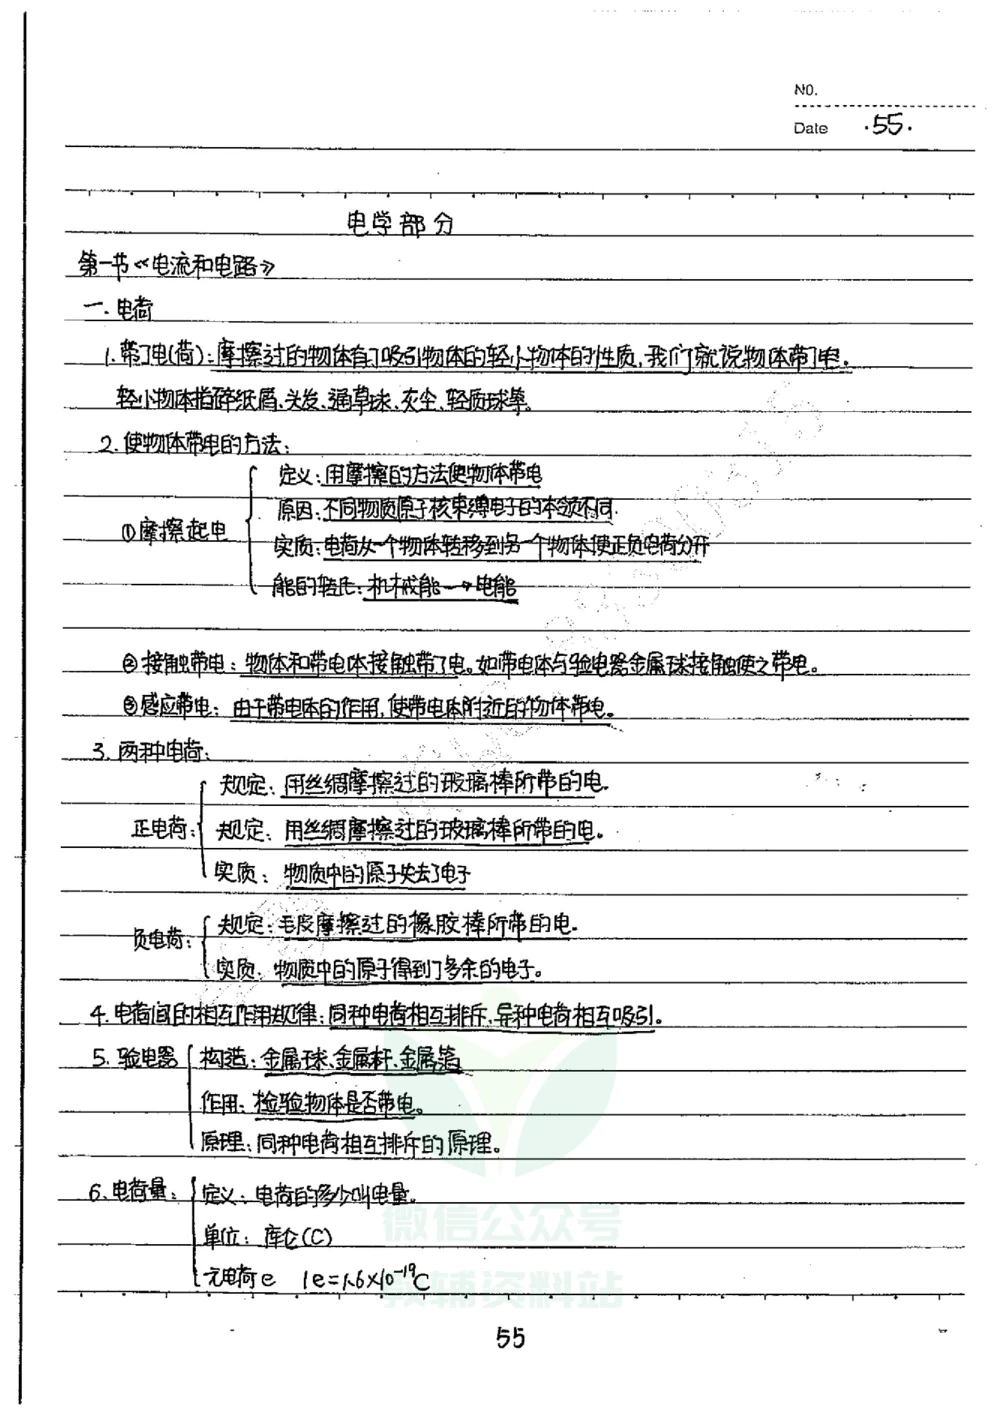 NO.
Date .55.
电学部分
第一节《电流和电路》
一.电荷
1.带了电(荷):摩擦过的物体有了吸引物体的轻小物体的性质,我们就说物体带了电。
轻小物体指碎纸屑、头发、通草球、灰尘、轻质球等。
2.使物体带电的方法:
①摩擦起电
定义:用摩擦的方法使物体带电
原因:不同物质原子核束缚电子的本领不同.
实质:电荷从一个物体转移到另一个物体使正负电荷分开
能的转化:机械能→电能
②接触带电:物体和带电体接触带了电。如带电体与验电器金属球接触使之带电。
③感应带电:由于带电体的作用,使带电体附近的物体带电。
3.两种电荷:
正电荷:
规定:用丝绸摩擦过的玻璃棒所带的电.
规定:用丝绸摩擦过的玻璃棒所带的电。
实质:物质中的原子失去了电子
负电荷:
规定:毛皮摩擦过的橡胶棒所带的电.
实质:物质中的原子得到了多余的电子。
4.电荷间的相互作用规律:同种电荷相互排斥、异种电荷相互吸引。
5.验电器
构造:金属球、金属杆、金属箔
作用:检验物体是否带电。
原理:同种电荷相互排斥的原理。
6.电荷量:
定义:电荷的多少叫电量。
单位:库仑(C)
元电荷e 1e=1.6×10⁻¹⁹C
微信公众号
教辅资料站
55